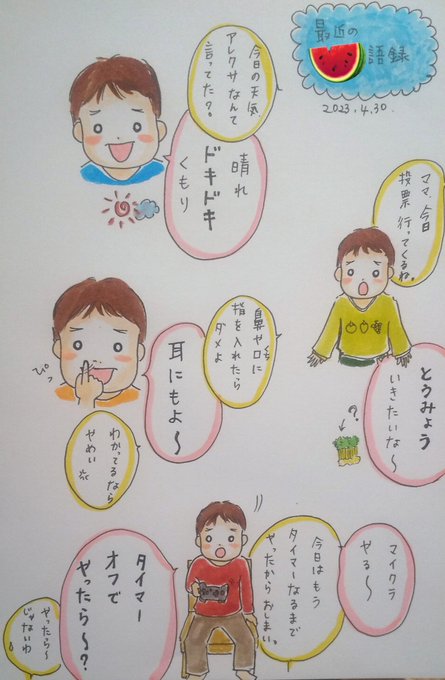 最近の
語録
2023.4.30.
今日の天気、
アレクサなんて
言ってた？
晴れ
ドキドキ
くもり
ママ、今日
投票 行ってくるね。
とうみょう
いきたいな〜
？
鼻や口に
くち
指を入れたら
ダメよ
耳にもよ〜
ぴっ
わかってるなら
やめい
マイクラ
やる〜
今日はもう
タイマーなるまで
やったからおしまい。
タイマー
オフで
やったら〜？
やったら〜
じゃないわ